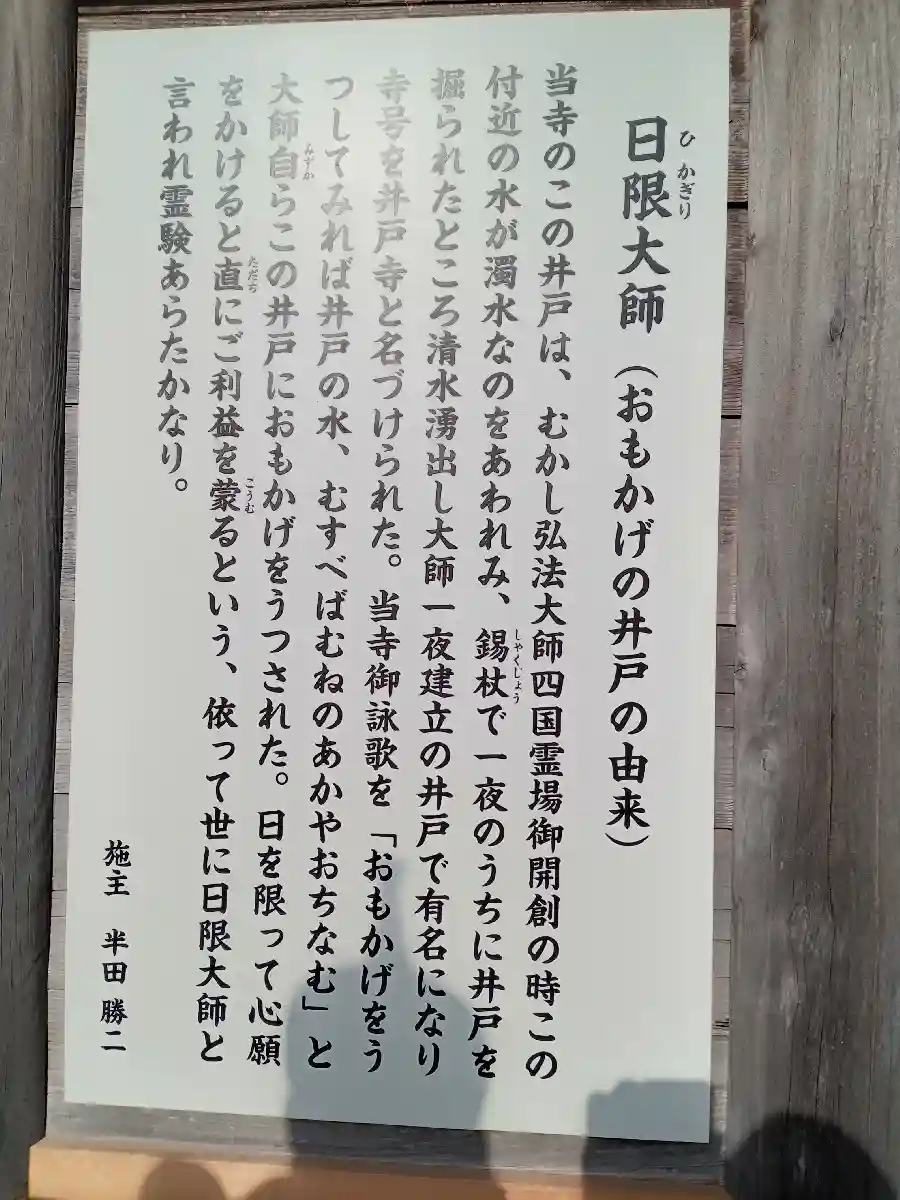 日限大師（おもかげの井戸の由来）
ひかぎり
当寺のこの井戸は、むかし弘法大師四国霊場御開創の時この
付近の水が濁水なのをあわれみ、錫杖で一夜のうちに井戸を
しゃくじょう
掘られたところ清水湧出し大師一夜建立の井戸で有名になり
寺号を井戸寺と名づけられた。当寺御詠歌を「おもかげをう
つしてみれば井戸の水、むすべばむねのあかやおちなむ」と
大師自らこの井戸におもかげをうつされた。日を限って心願
みずか
をかけると直にご利益を蒙るという、依って世に日限大師と
ただち
こうむ
言われ霊験あらたかなり。
施主 半田 勝二